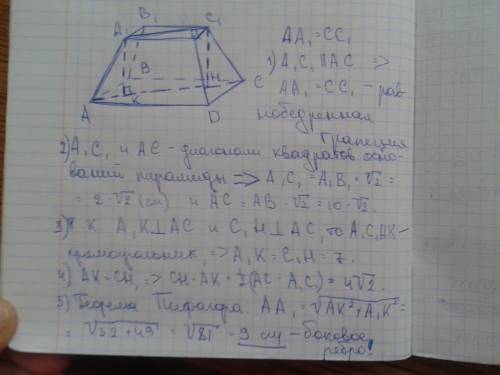 B₁ C₁
A₁
B H C
K
A D
AA₁ = CC₁
1) A₁C₁ || AC =>
AA₁ = CC₁ - рав-
нобедренная
трапеция
2) A₁C₁ и AC - диагонали квадратов осно-
ваний пирамиды => A₁C₁ = A₁B₁ · √2 =
= 2 · √2 (см) и AC = AB · √2 = 10 · √2.
3) Т. к. A₁K ⊥ AC и C₁H ⊥ AC, то A₁C₁HK -
прямоугольник, => A₁K = C₁H = 7.
4) AK = CH, => CH = AK = ½(AC - A₁C₁) = 4√2.
5) Теорема Пифагора. AA₁ = √AK² + A₁K² =
= √32 + 49 = √81 = 9 см - боковое
ребро!